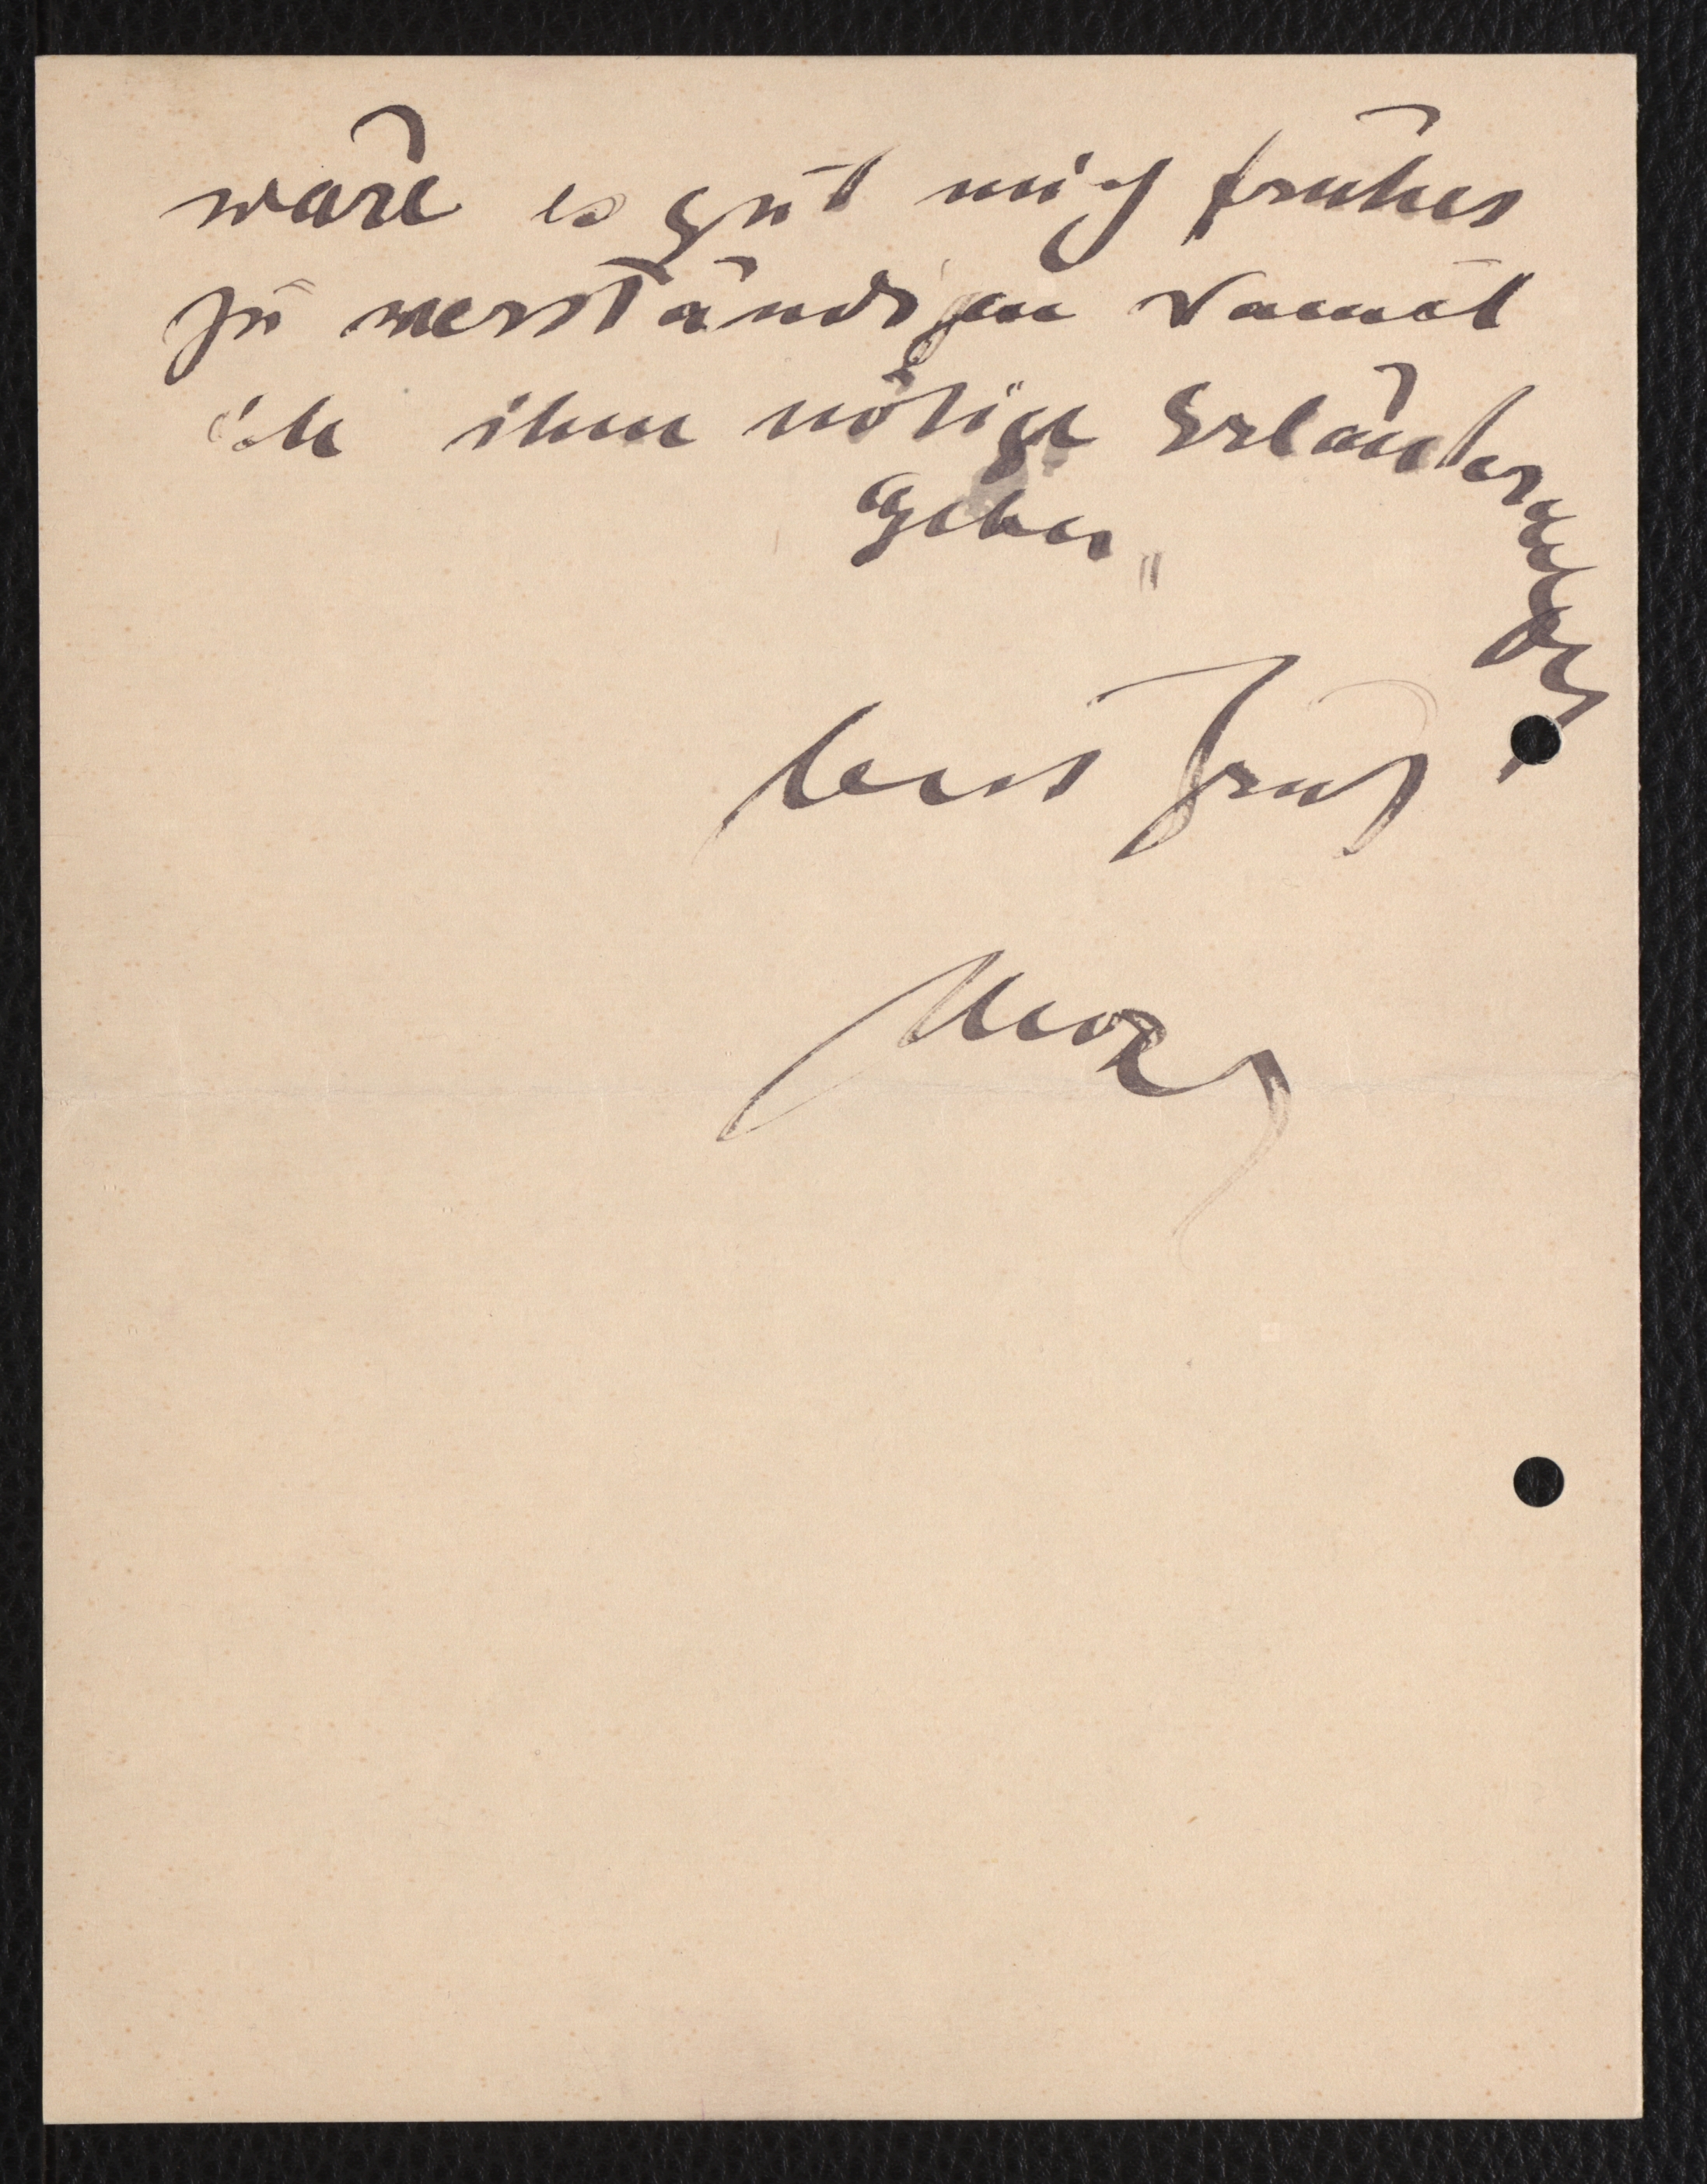 wäre es gut mich früher
zu verständigen damit
ich ihm nötige Erläuterungen
geben
Gruß